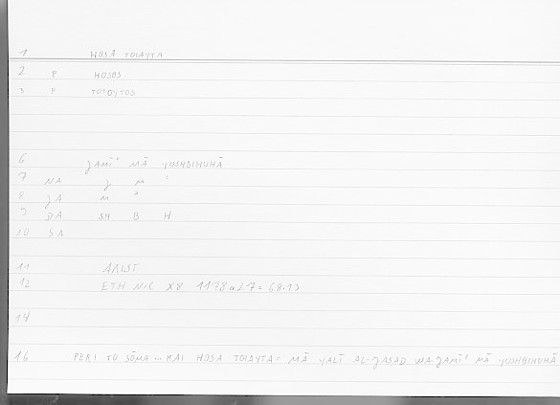 1 HOSA TOIAYTA
2 P HOSOS
3 P TOIOYTOS
6 ǦAMĪʿ MĀ YUSHBIHUHĀ
7 NA ǧ m ʿ
8 ǦA m ʿ
9 DA SH B H
10 SA
11 ARIST
12 ETH NIC X8 1178a27 = 68.13
14
16 PERI TO SŌMA ... KAI HOSA TOIAYTA = MĀ YALĪ AL-ǦASAD WA-ǦAMĪʿ MĀ YUSHBIHUHĀ